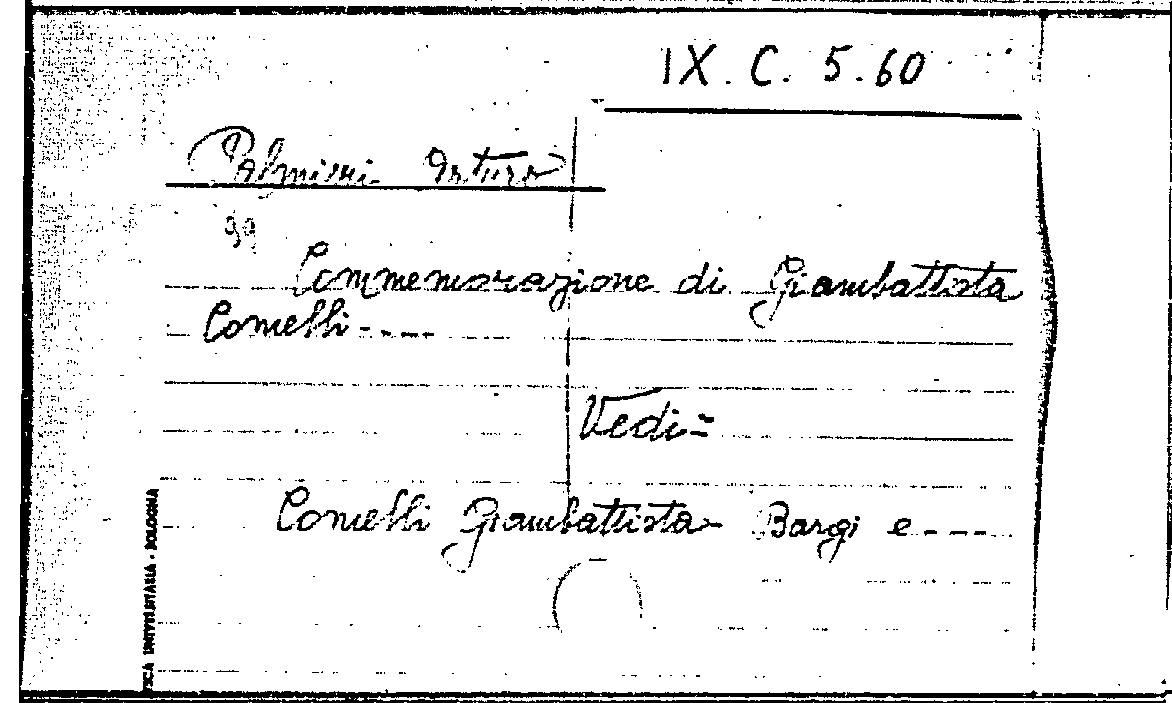 IX. C. 5.60
Palmieri Arturo
99
Commemorazione di Giambattista
Comelli - - - -
Vedi =
Comelli Giambattista - Bargi e - - - -
TECA UNIVERSITARIA - BOLOGNA